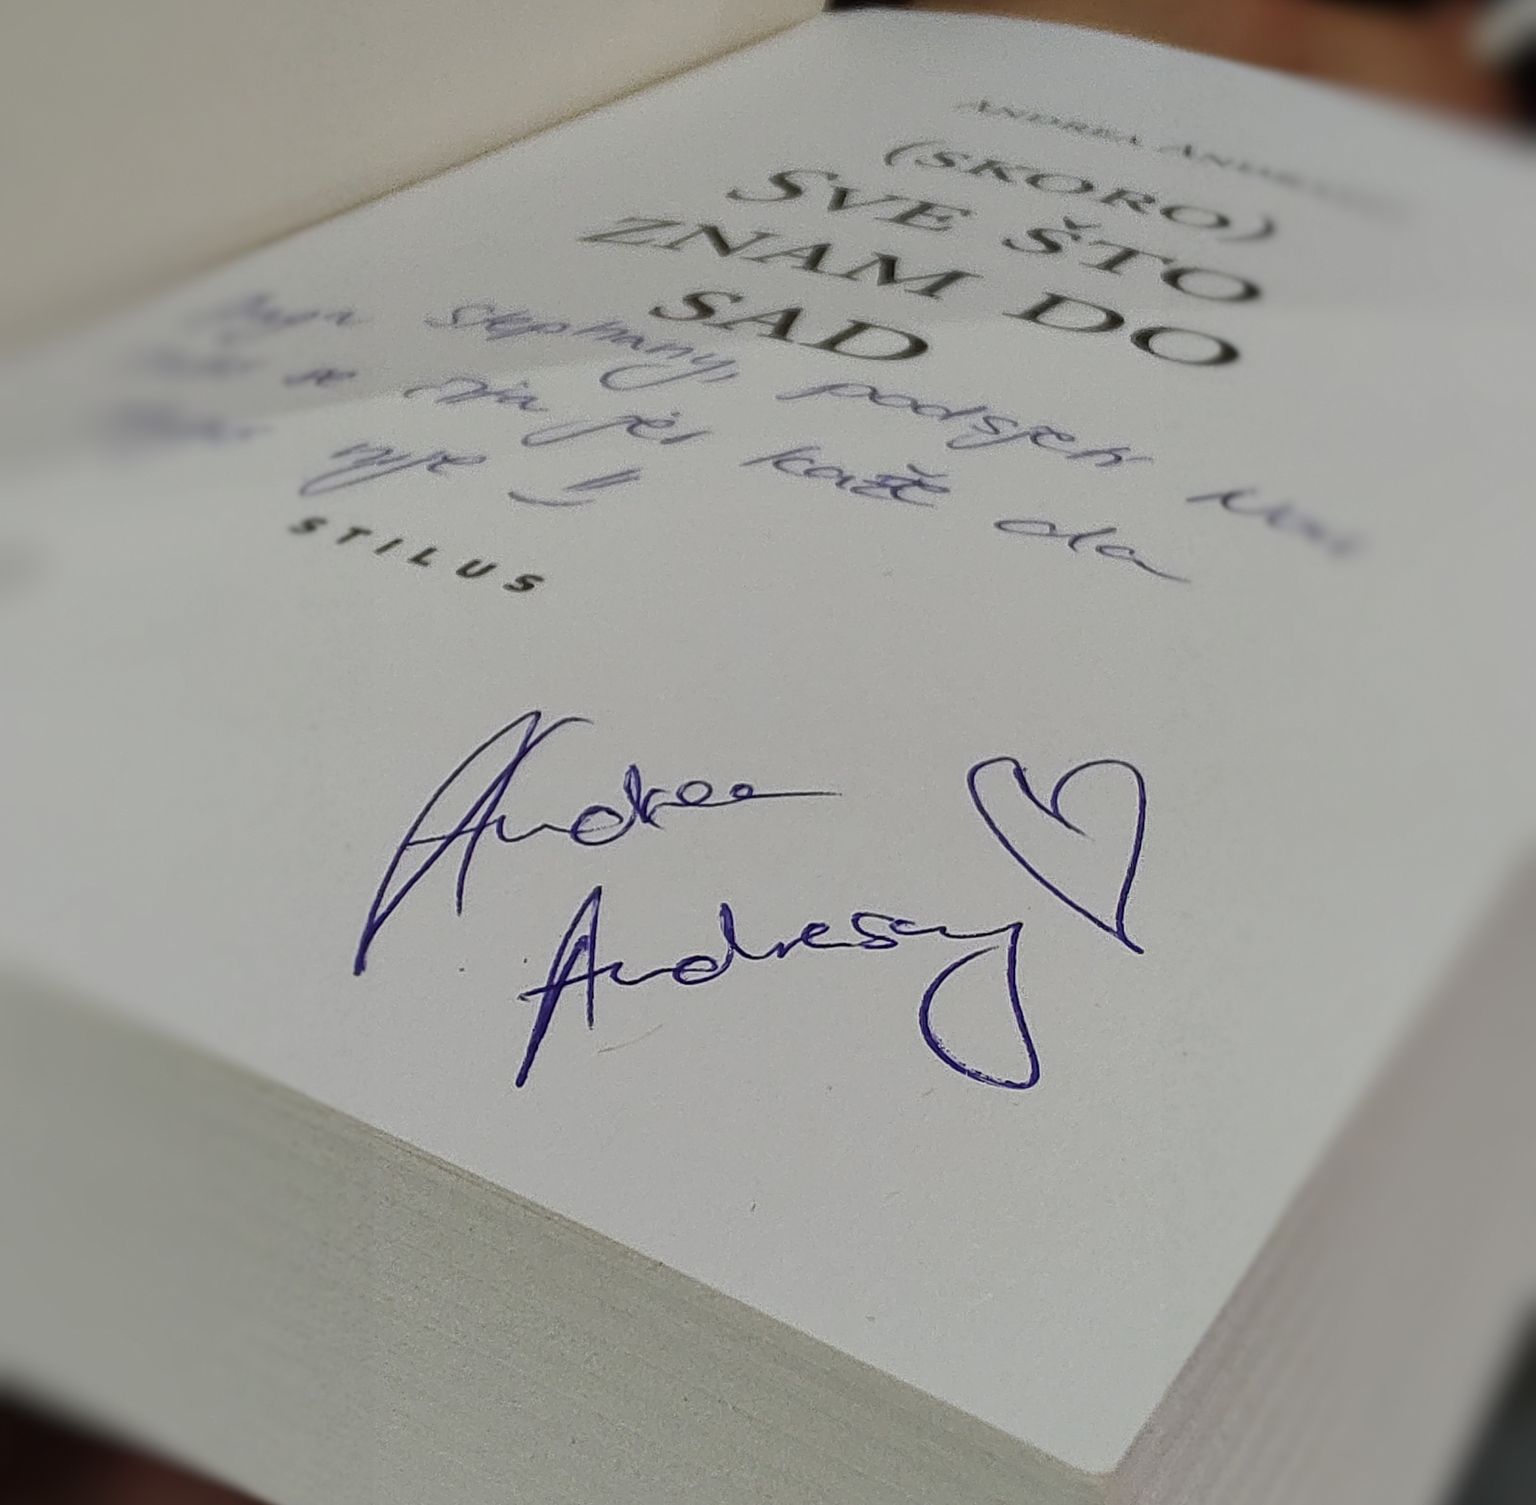 ANDREA ANDRASSY
(SKORO)
SVE ŠTO
ZNAM DO
SAD
Stephany, podsjeti
se nije jer kaže da
nije !!
STILUS
Andrea
Andrassy